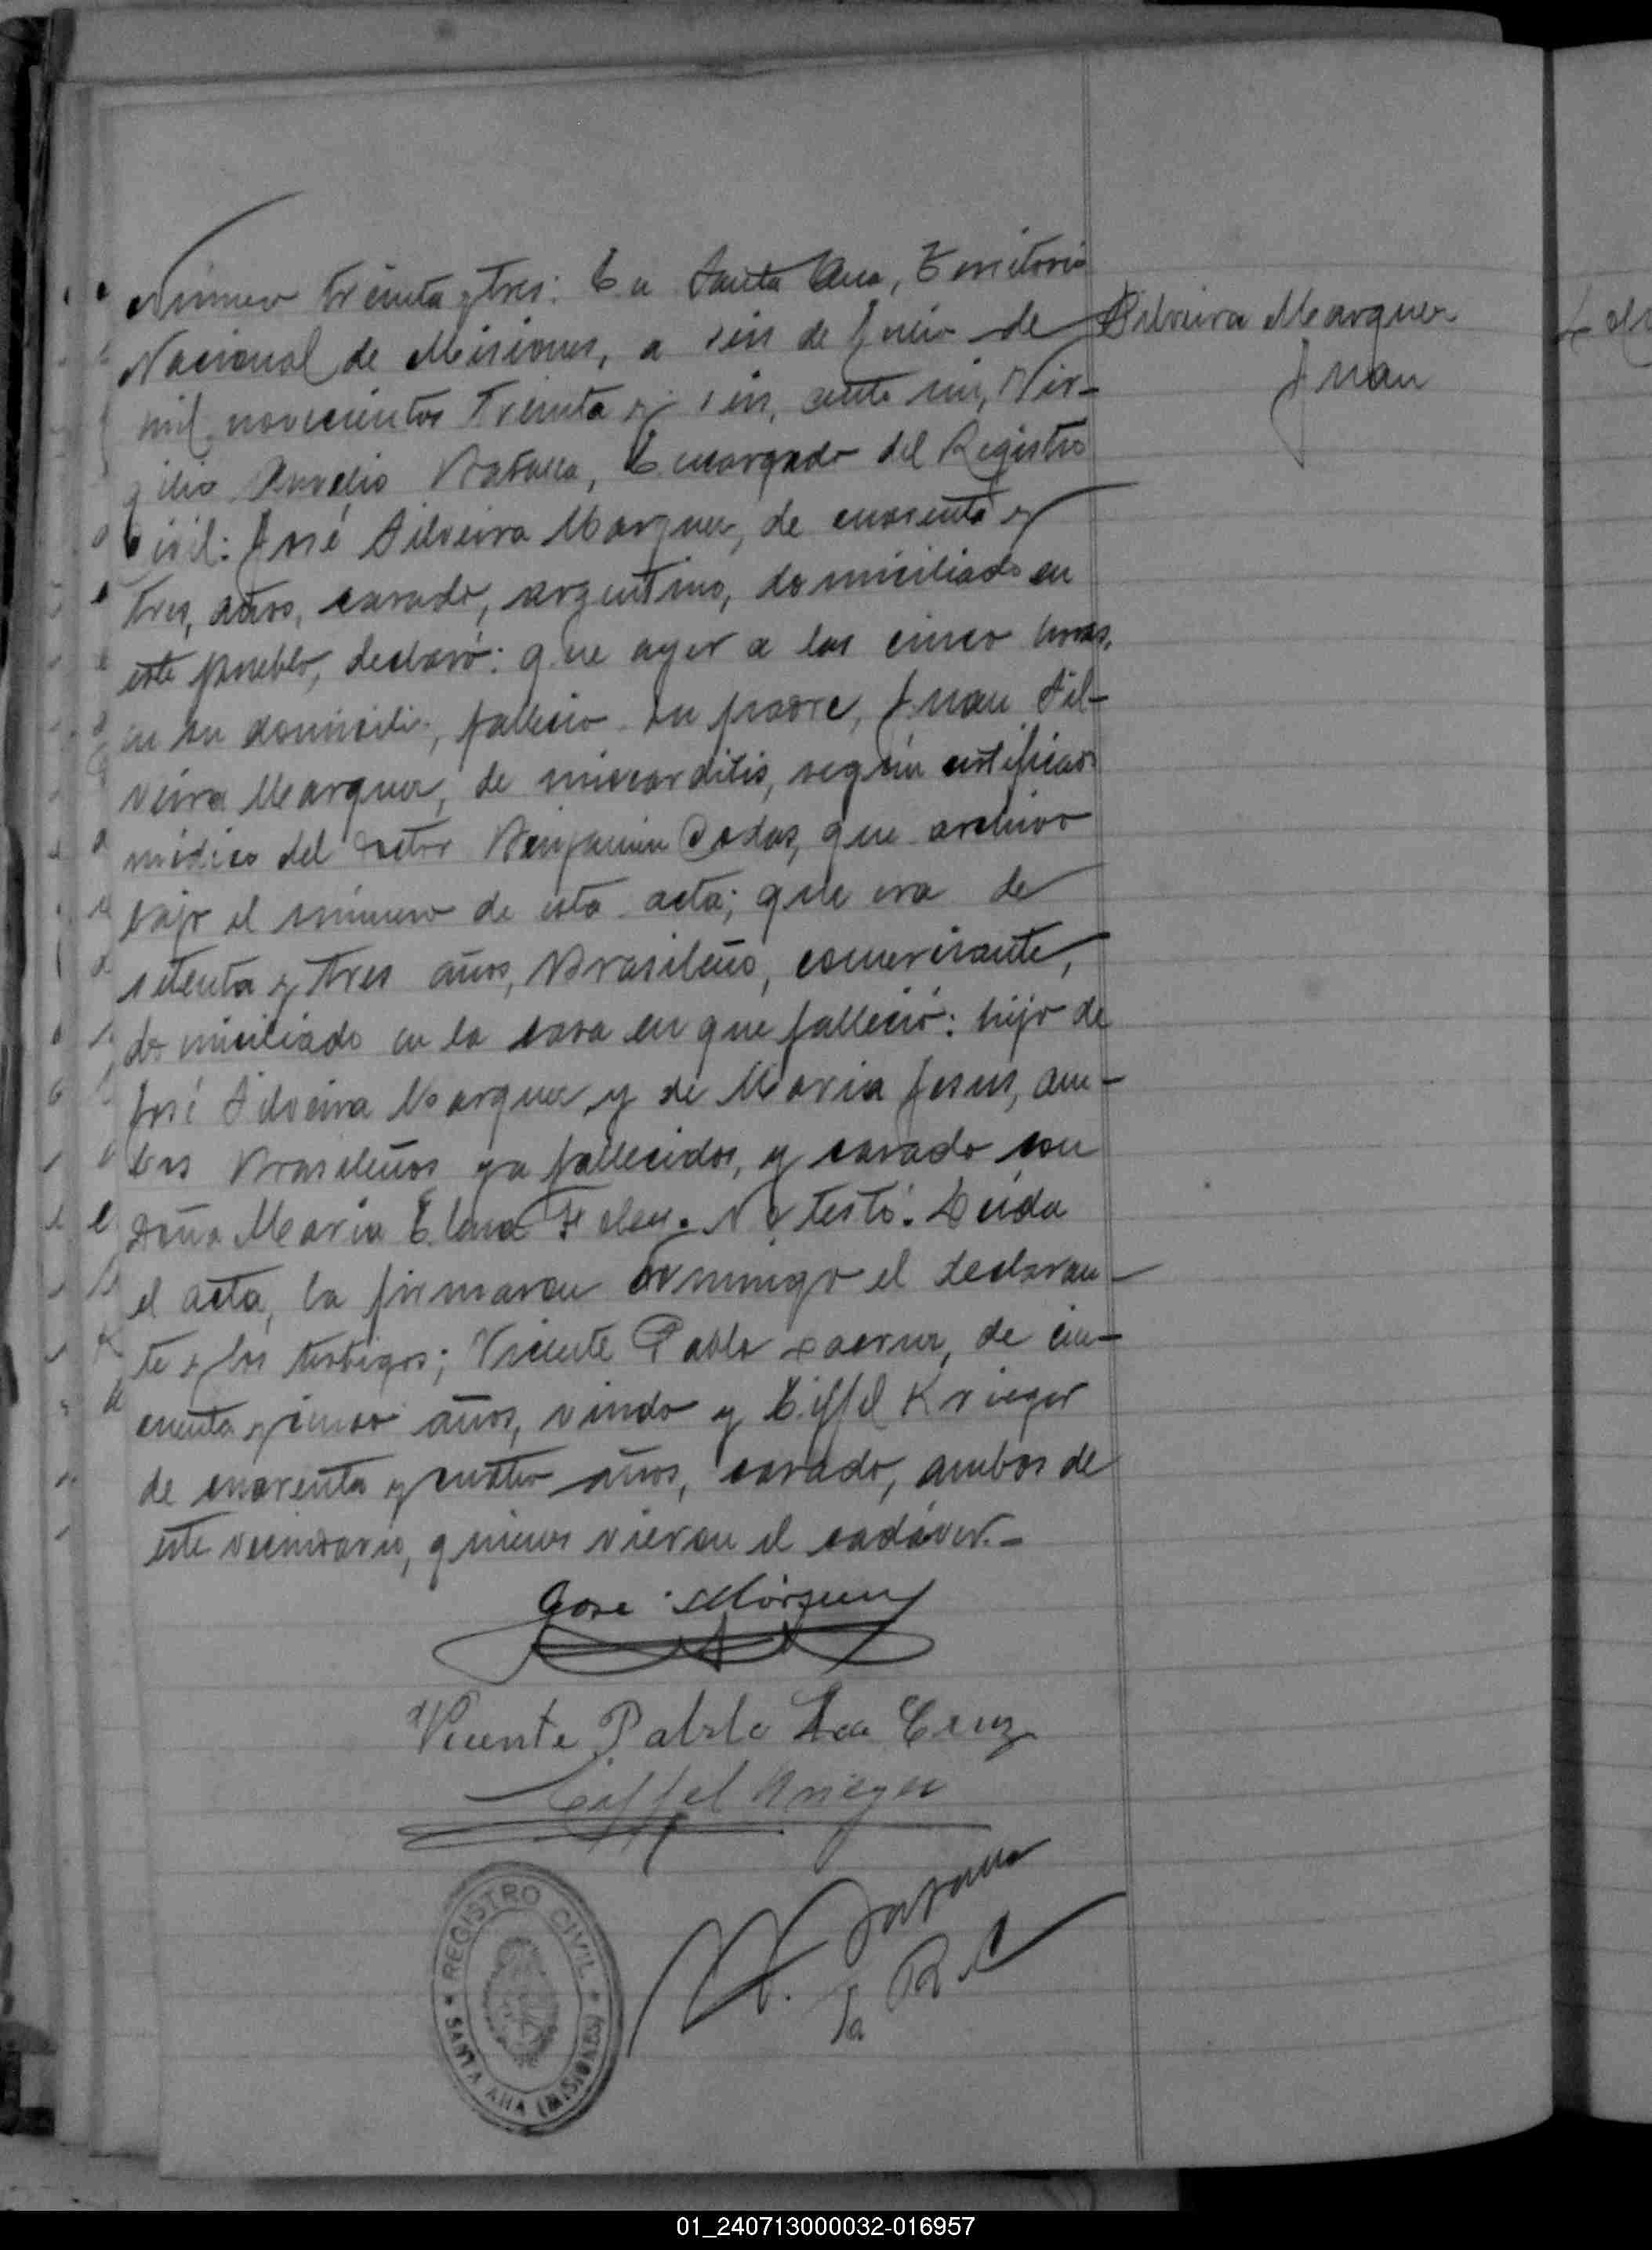 Número treinta y tres: En Santa Ana, Territorio
Nacional de Misiones, a seis de Junio de
mil novecientos treinta y seis, ante mi, Vir-
gilio Aurelio, Encargado del Registro
Civil: José Silveira Marquez, de cuarenta y
tres, años, casado, argentino, domiciliado en
este pueblo, declaró: que ayer a las cinco horas,
en su domicilio, falleció su padre, Juan Sil-
veira Marquez, de miocarditis, según certificado
médico del doctor Benjamin, que archivo
bajo el número de esta acta; que era de
setenta y tres años, Brasileño, comerciante,
domiciliado en la casa en que falleció: hijo de
José Silveira Marquez y de Maria Jesus, am-
bos Brasileños ya fallecidos, y casado con
doña Maria Elena. No testó. Leída
el acta, la firmaron conmigo el declaran-
te y los testigos; Vicente Pablo Lacruz, de cin-
cuenta y cinco años, viudo y Eiffel Krieger
de cuarenta y cuatro años, casado, ambos de
este vecindario, quienes vieron el cadáver.-
Silveira Marquez
Juan
Jose Márquez
Vicente Pablo La Cruz
Eiffel Krieger
REGISTRO CIVIL
SANTA ANA (MISIONES)
01_240713000032-016957